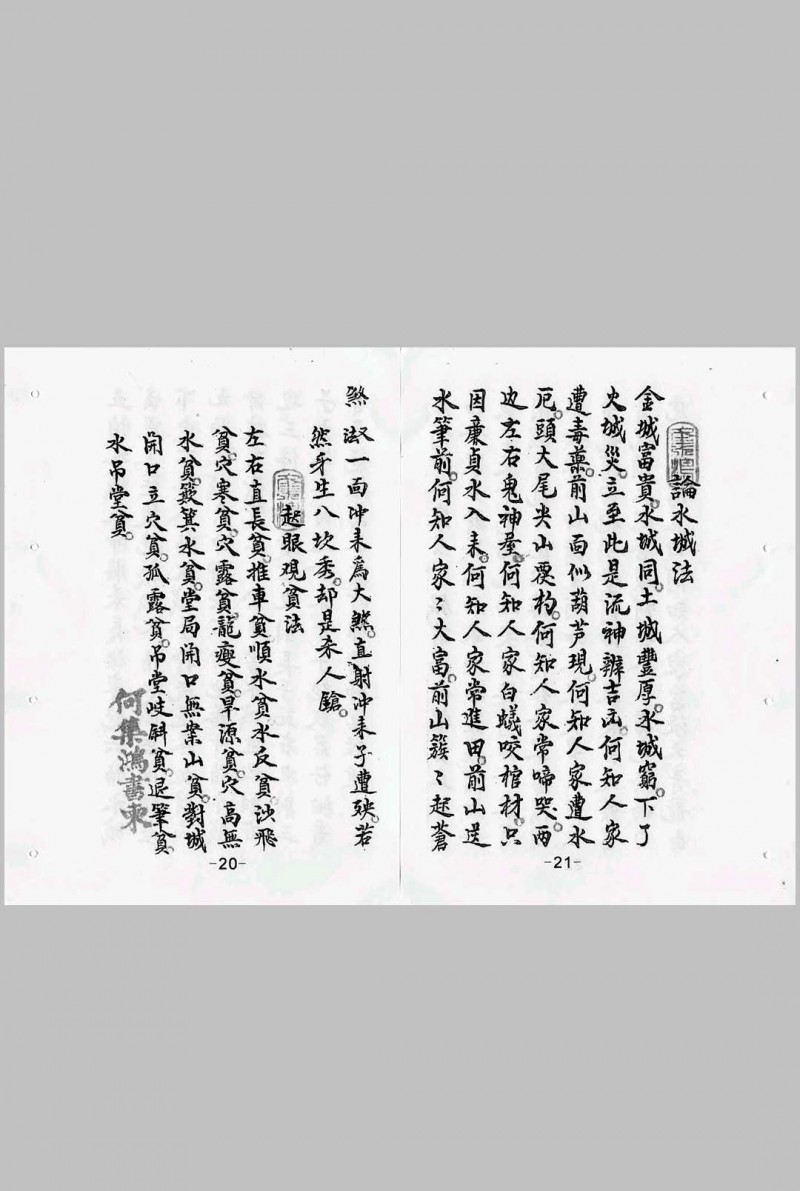 煞淑一面冲来爲大煞。直射冲来子遭殃。若
然身生八坎秀。却是来人
起眼观貧法
左右直長貧。推車貧。順水貧。水反貧。沙飛
貧。穴寒貧。穴露貧。龍瘦貧。旱源貧。穴高無
水貧。簸箕水貧。堂局開口無案山貧。對城
開口立穴貧。孤露貧。吊堂岐斜貧。退筆貧。
水吊堂貧。
何集鴻書柬
-20-
論水城法
金城富貴。水城同。土城豐厚。水城窮。下了
火城災。立至此是流神辨吉凶。何知人家
遭毒藥。前山面似葫芦現。何知人家遭水
厄。頭大尾尖山要杓。何知人家常啼哭。兩
边左右鬼神屋。何知人家白蟻咬棺材。只
因廉貞水入来。何知人家常進田。前山送
水筆前。何知人家〻大富。前山簇〻起蒼
-21-